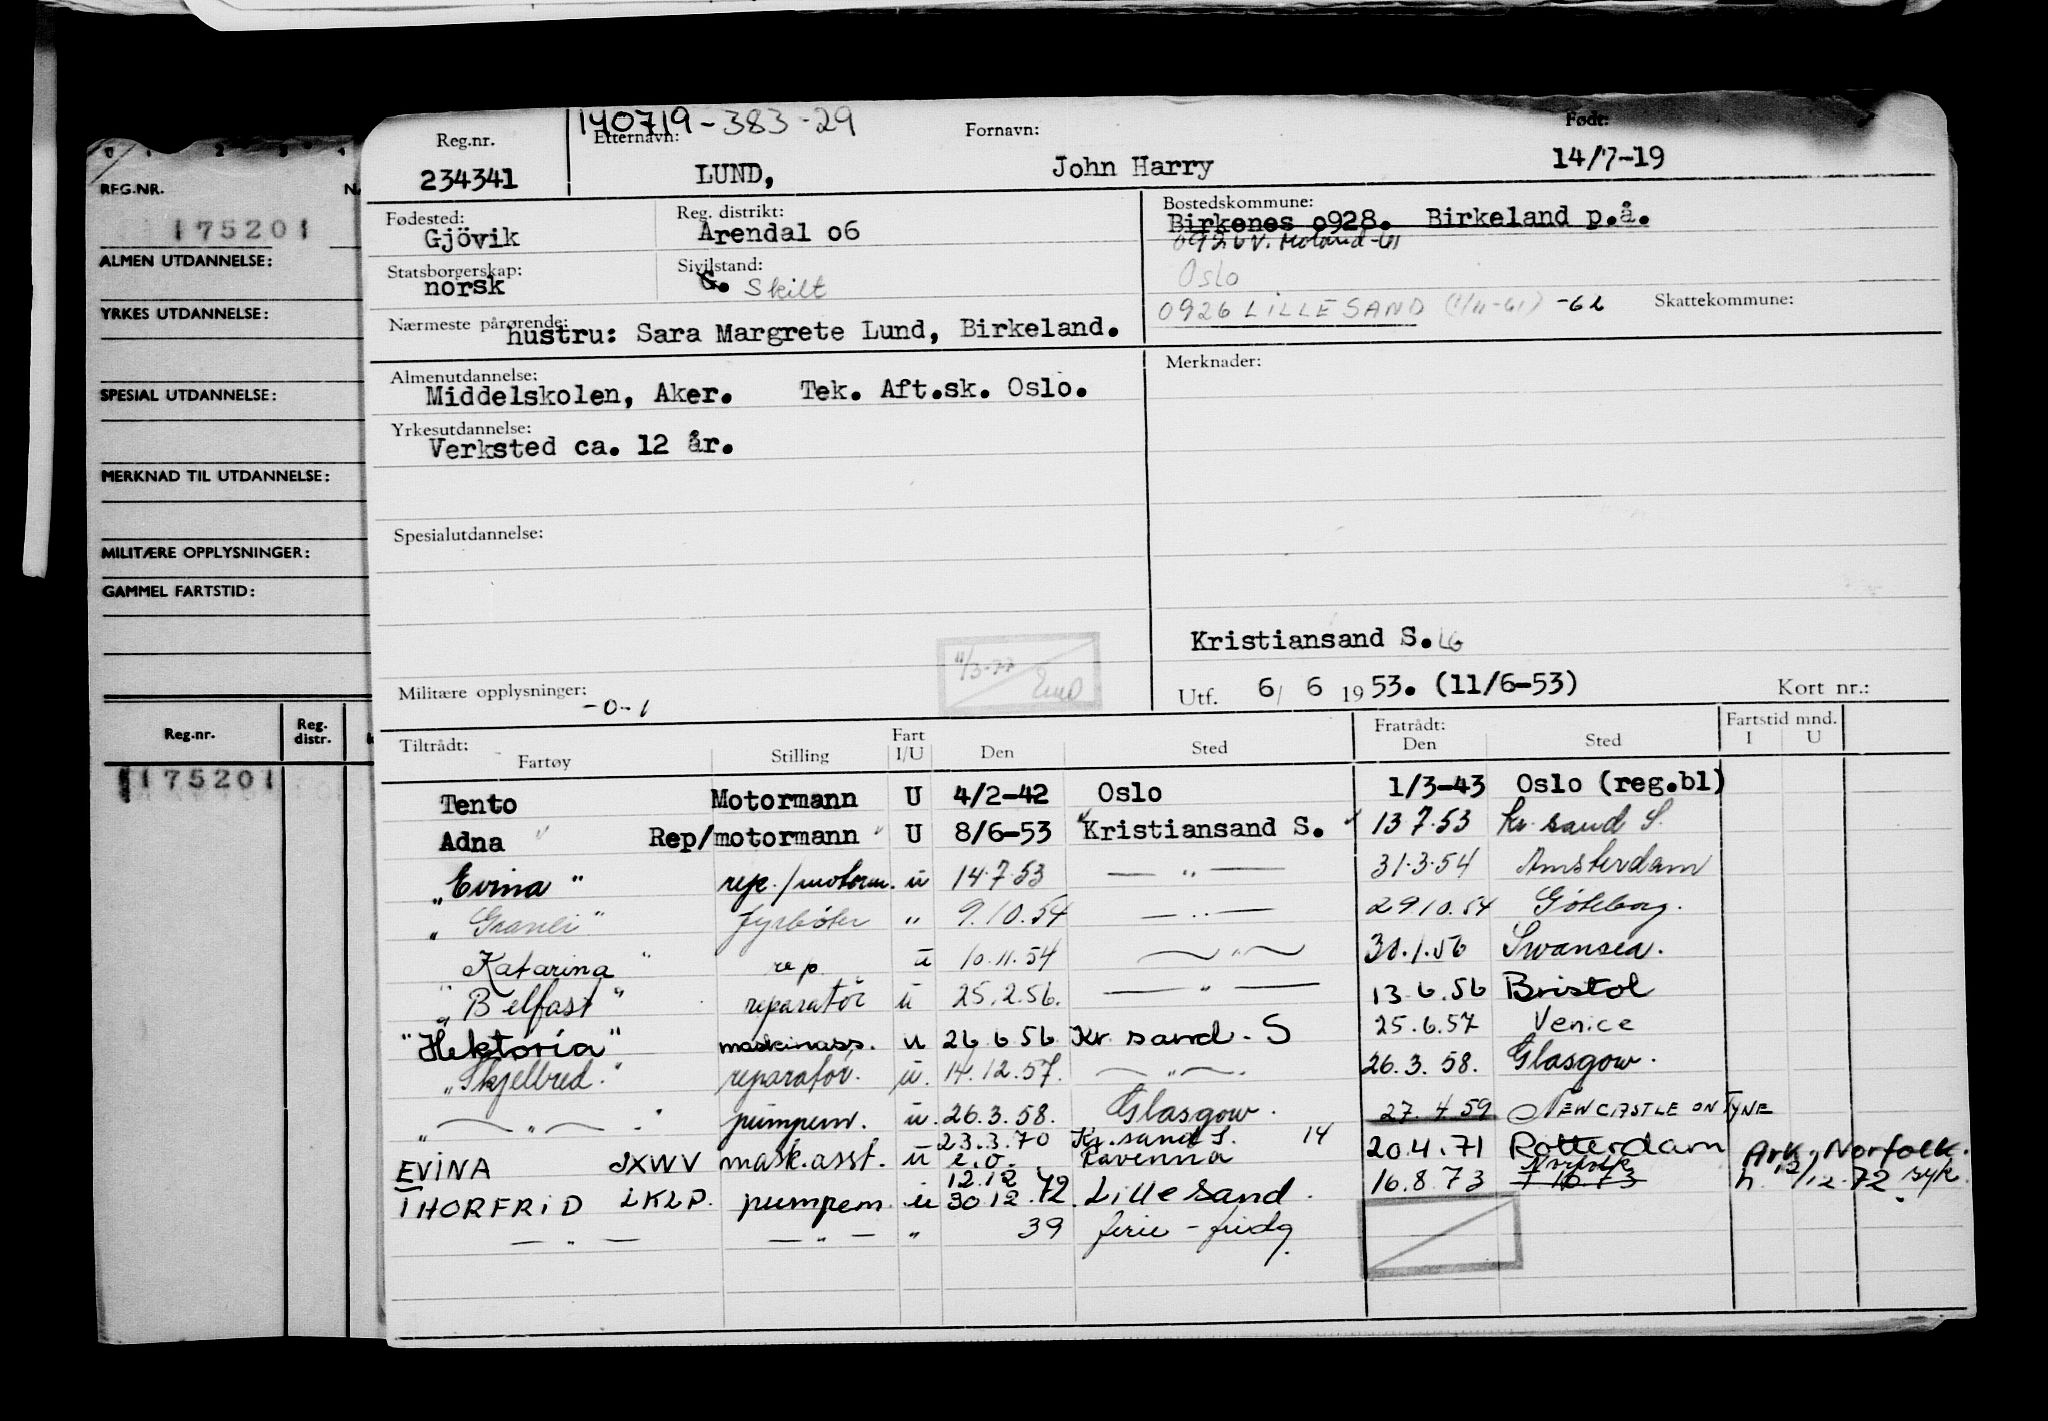 REG.NR. NA
175201
ALMEN UTDANNELSE:
YRKES UTDANNELSE:
SPESIAL UTDANNELSE:
MERKNAD TIL UTDANNELSE:
MILITÆRE OPPLYSNINGER:
GAMMEL FARTSTID:
Reg.nr. Reg. distr.
175201
140719-383-29
Reg.nr. Etternavn: Fornavn: Født:
234341 LUND, John Harry 14/7-19
Fødested: Reg. distrikt: Bostedskommune:
Gjövik Arendal o6 Birkenes o928. Birkeland p.å.
0926 V. Moland
Statsborgerskap: Sivilstand: Oslo
norsk G. Skilt
0926 LILLESAND (1/11-61) -62 Skattekommune:
Nærmeste pårørende:
hustru: Sara Margrete Lund, Birkeland.
Almenutdannelse: Merknader:
Middelskolen, Aker. Tek. Aft.sk. Oslo.
Yrkesutdannelse:
Verksted ca. 12 år.
Spesialutdannelse:
Kristiansand S. LG
11/3-77
Militære opplysninger: -0-1 Utf. 6/ 6 1953. (11/6-53) Kort nr.:
Tiltrådt: Fart Fratrådt: Fartstid mnd.
Fartøy Stilling I/U Den Sted Den Sted I U
Tento Motormann U 4/2-42 Oslo 1/3-43 Oslo (reg.bl)
Adna " Rep/motormann " U 8/6-53 Kristiansand S. 13 7.53 Kr. sand S.
„Evina" rep./motorm. u 14.7.53 — „ — 31.3.54 Amsterdam
„ Granli" fyrbøter „ 9.10.54 — „ — 29 10.54 Göteborg.
„ Katarina " rep ū 10.11.54 — „ — 30.1.56 Swansea.
„ Belfast" reparatör ū 25.2.56. — „ — 13.6.56 Bristol
"Hektoria" maskinass. u 26 6 56 Kr sand. S 25.6.57 Venice
„Skjelbred." reparatör. ū. 14.12.57. — „ — 26.3.58. Glasgow.
„ — „ — " pumpem. ū. 26.3.58. Glasgow. 27.4 59 NEWCASTLE ON TYNE
23.3.70 Kr. sand S. 14
EVINA JXWV mask.asst. ū e.o. Ravenna 20.4.71 Rotterdam Ark. Norfolk.
12.12 Norfolk h. 12/12.72 syk.
THORFRID LKLP. pumpem. ū 30.12.72. Lillesand. 16.8.73
— „ — — „ — „ 39 ferie - fridg.